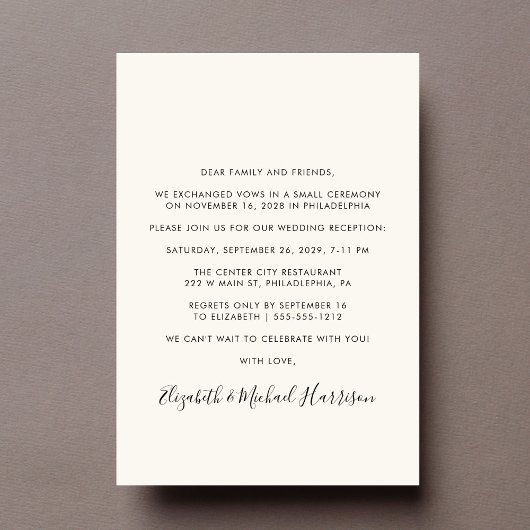 DEAR FAMILY AND FRIENDS,
WE EXCHANGED VOWS IN A SMALL CEREMONY
ON NOVEMBER 16, 2028 IN PHILADELPHIA
PLEASE JOIN US FOR OUR WEDDING RECEPTION:
SATURDAY, SEPTEMBER 26, 2029, 7-11 PM
THE CENTER CITY RESTAURANT
222 W MAIN ST, PHILADLEPHIA, PA
REGRETS ONLY BY SEPTEMBER 16
TO ELIZABETH | 555-555-1212
WE CAN'T WAIT TO CELEBRATE WITH YOU!
WITH LOVE,
Elizabeth & Michael Harrison